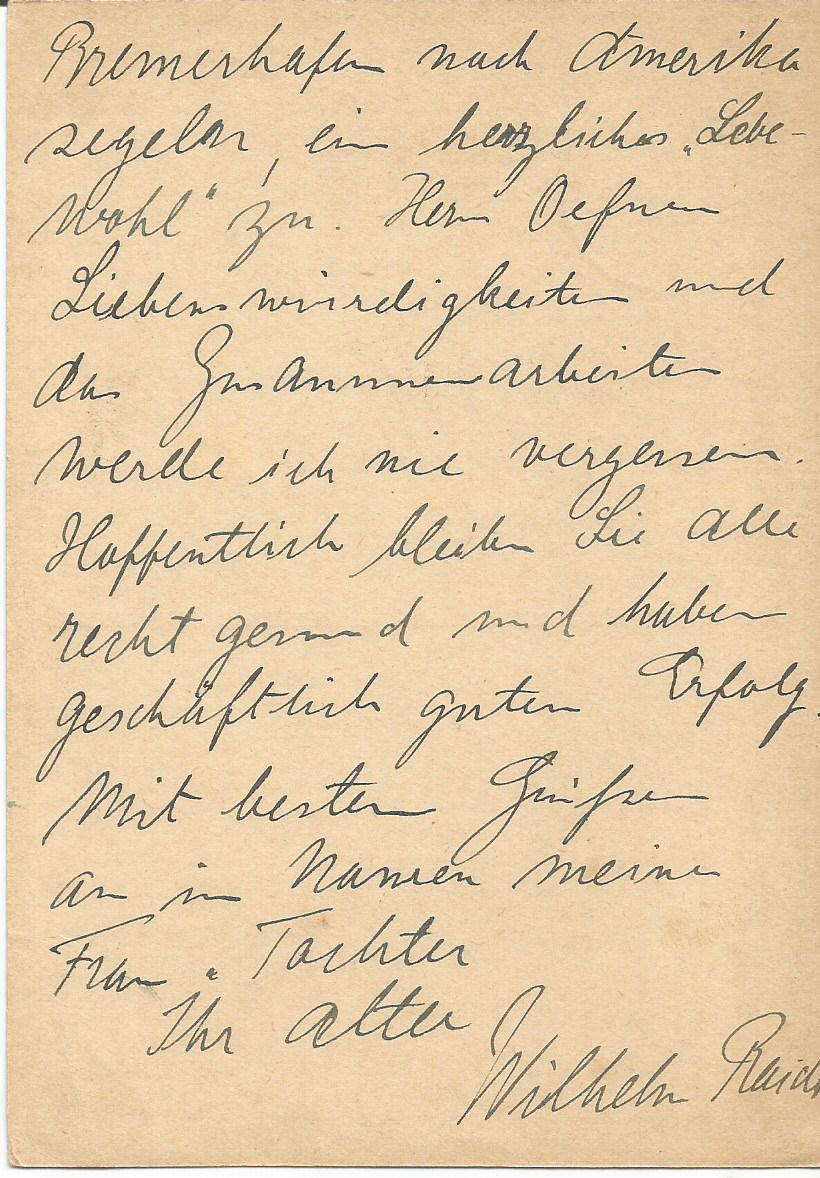 Bremerhafen nach Amerika
segeln, ein herzliches „Lebe-
wohl" zu. Ihre
Liebenswürdigkeiten und
das Zusammenarbeiten
werde ich nie vergessen.
Hoffentlich bleiben Sie alle
recht gesund und haben
geschäftlich guten Erfolg.
Mit besten Grüßen
im Namen meiner
Frau u. Tochter
Ihr alter
Wilhelm